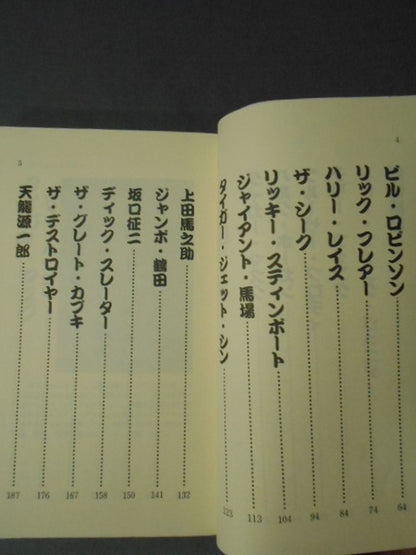 4
ビル・ロビンソン 64
リック・フレアー 74
ハリー・レイス 84
ザ・シーク 94
リッキー・スティンボート 104
ジャイアント・馬場 113
タイガー・ジェット・シン 123
5
上田馬之助 132
ジャンボ・鶴田 141
坂口征二 150
ディック・スレーター 158
ザ・グレート・カブキ 167
ザ・デストロイヤー 176
天龍源一郎 187